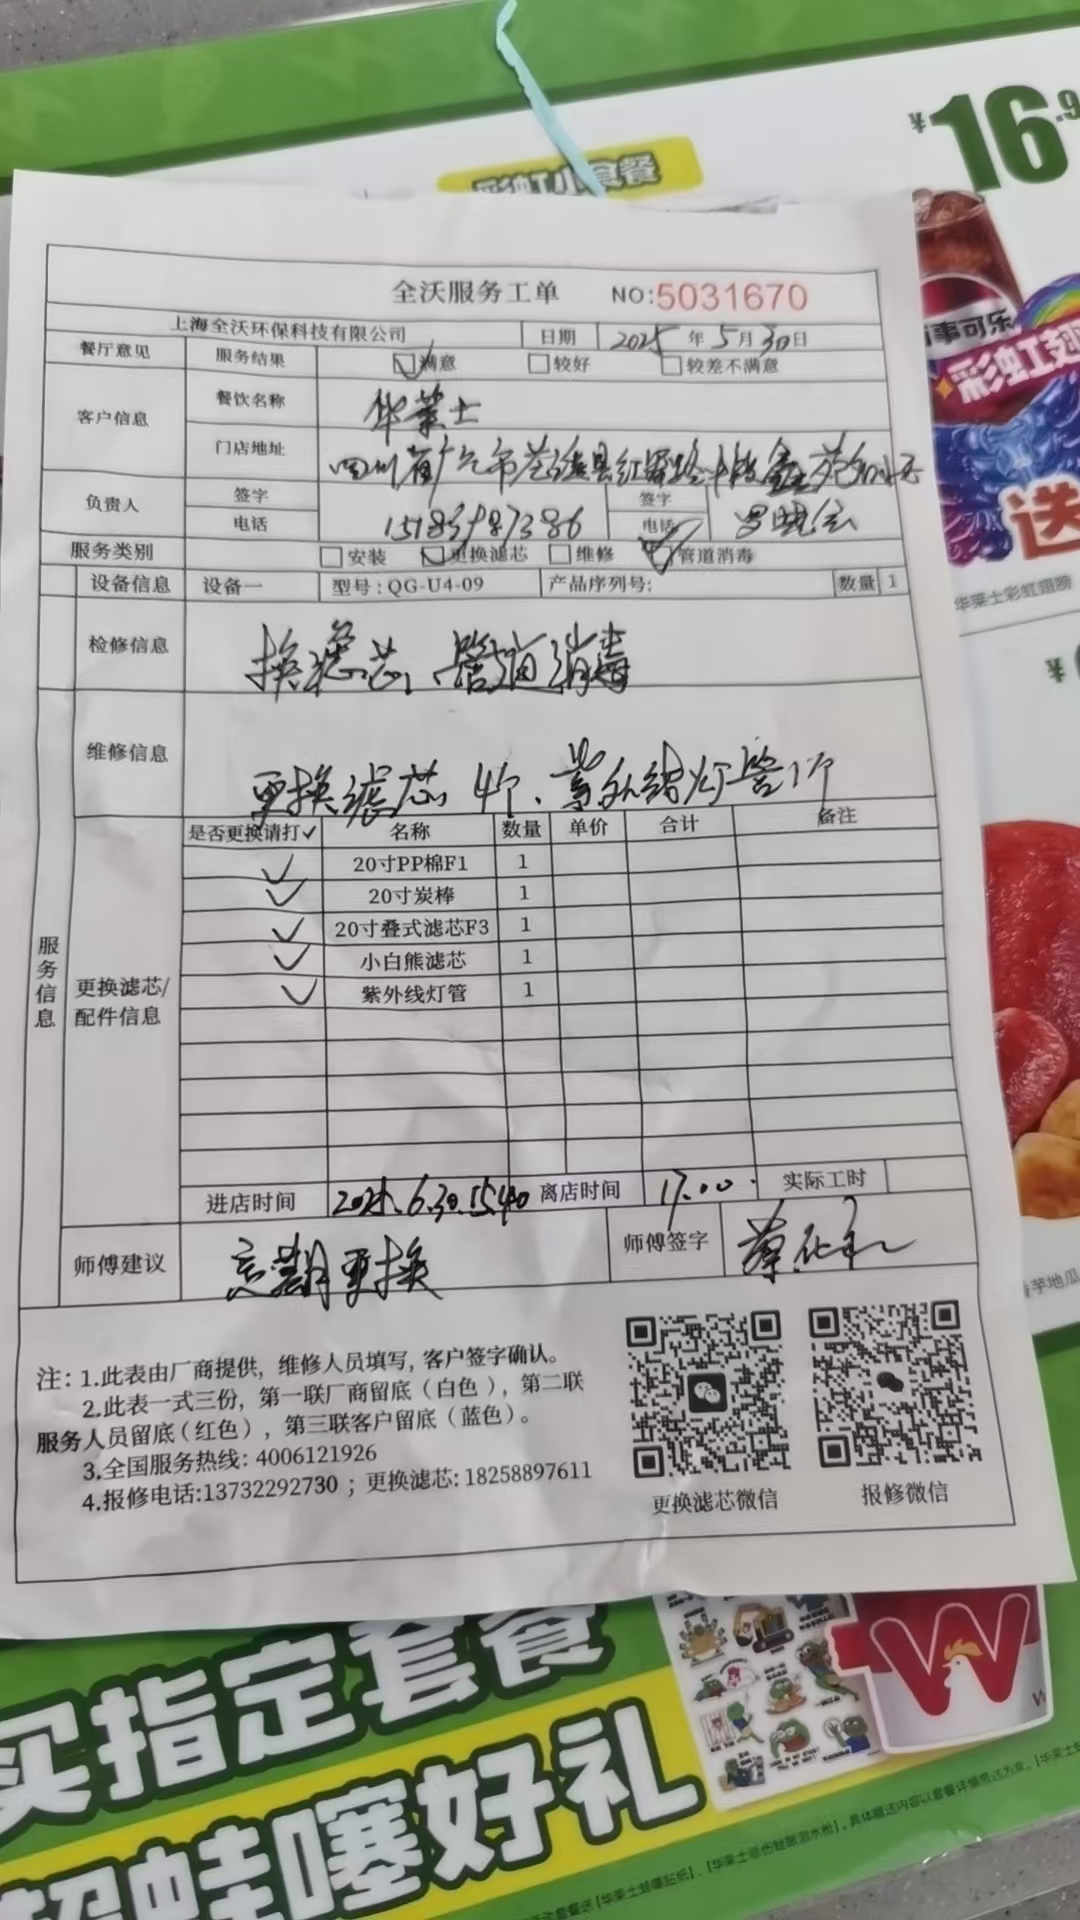 ¥16.9
彩虹小食餐
全沃服务工单 NO:5031670
上海全沃环保科技有限公司 日期 2025 年 5 月 30 日
餐厅意见 服务结果 满意 较好 较差不满意
客户信息 餐饮名称 华莱士
门店地址 四川省广元市苍溪县红军路
负责人 签字 签字
电话 15183987386 电话
服务类别 安装 更换滤芯 维修 管道消毒
设备信息 设备一 型号：QG-U4-09 产品序列号： 数量 1
检修信息 换滤芯、管道消毒
维修信息 更换滤芯 4个、紫外线灯管1个
服务信息
更换滤芯/配件信息
是否更换请打✓ 名称 数量 单价 合计 备注
✓ 20寸PP棉F1 1
✓ 20寸炭棒 1
✓ 20寸叠式滤芯F3 1
✓ 小白熊滤芯 1
✓ 紫外线灯管 1
进店时间 2025.6.30.15:40 离店时间 17:00 实际工时
师傅建议 定期更换 师傅签字
注：1.此表由厂商提供，维修人员填写，客户签字确认。
2.此表一式三份，第一联厂商留底（白色），第二联
服务人员留底（红色），第三联客户留底（蓝色）。
3.全国服务热线：4006121926
4.报修电话:13732292730；更换滤芯:18258897611
更换滤芯微信 报修微信
百事可乐
彩虹翅
送
华莱士彩虹翅膀
香芋地瓜
买指定套餐
超蛙噻好礼